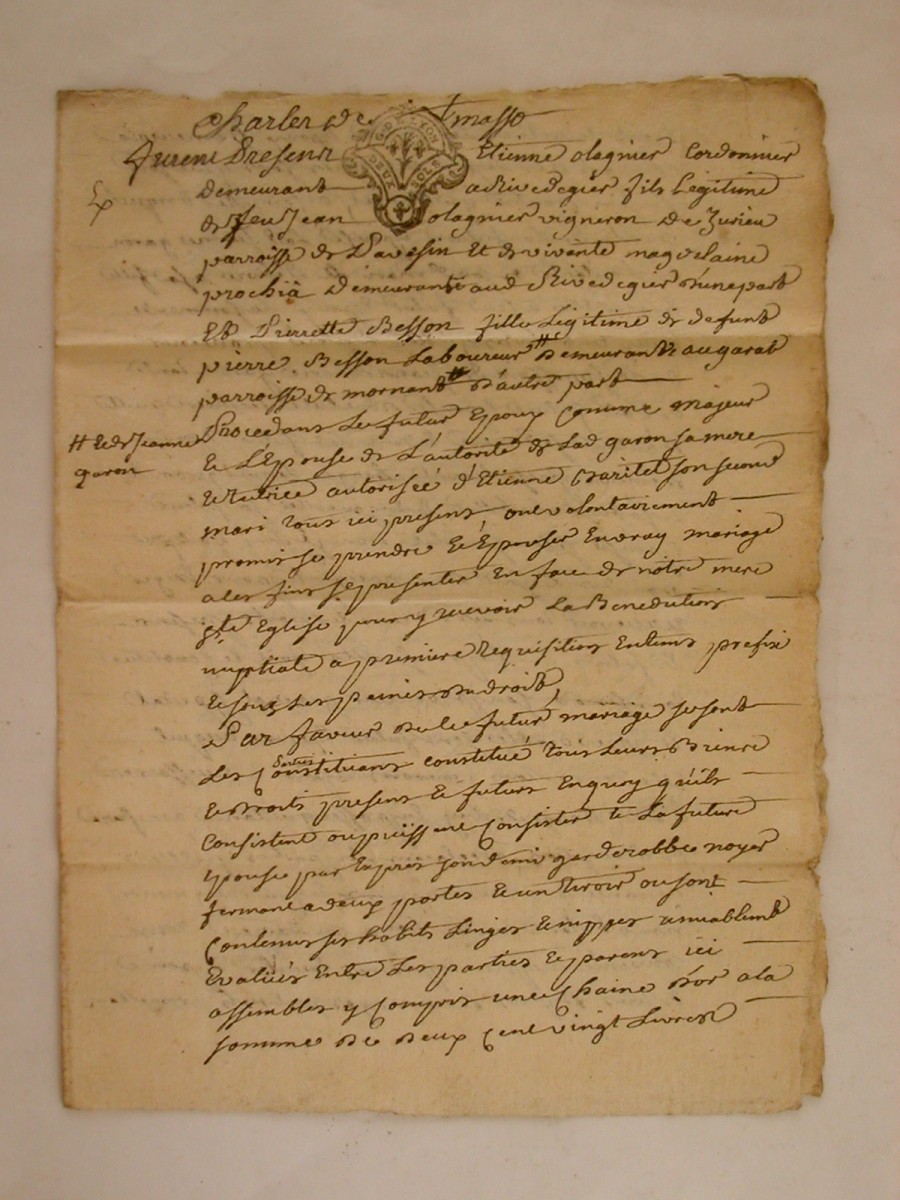 Charles de masso
furent Presens Etienne olagnier Cordonnier
GD LYON
DEUX SOLS
Demeurant a Rivedegier fils Legitime
de feu Jean olagnier vigneron de Jurieu
parroisse de Pavesin et de vivente magdelaine
prochia Demeurante aud Rivedegier d'une part
Et Pierrette Besson fille Legitime de defunt
pierre Besson Laboureur # Demeurante au garat
parroisse de mornant # d'autre part
# Et de Jeanne
garon
Procedans Le futur Epoux Comme majeur
Et L'Epouse de L'autorité de Lad garon sa mere
et tutrice autorisée d'Etienne Charitet son second
mari tous ici presens ont volontairement
promis se prendre et Epouser En vray mariage
a ces fins se presenter En face de notre mere
ste Eglise pour y recevoir La Benediction
nuptiale a premiere requisition En tems prefix
et sous Les peines du droit,
Par faveur du le futur mariage se sont
Les Constituans constitué tous Leurs Biens
et droits presens et futurs En quoy qu'ils
Consistent ou puissent Consister et La future
Epouse par Exprès son demi garderobbe noyer
fermant a deux portes et un tiroir ou sont
Contenus ses habits Linges et nippes amiablemt
Evalués Entre Les parties et parens ici
assemblés y Compris une Chaine d'or a la
somme de deux Cent vingt Livres